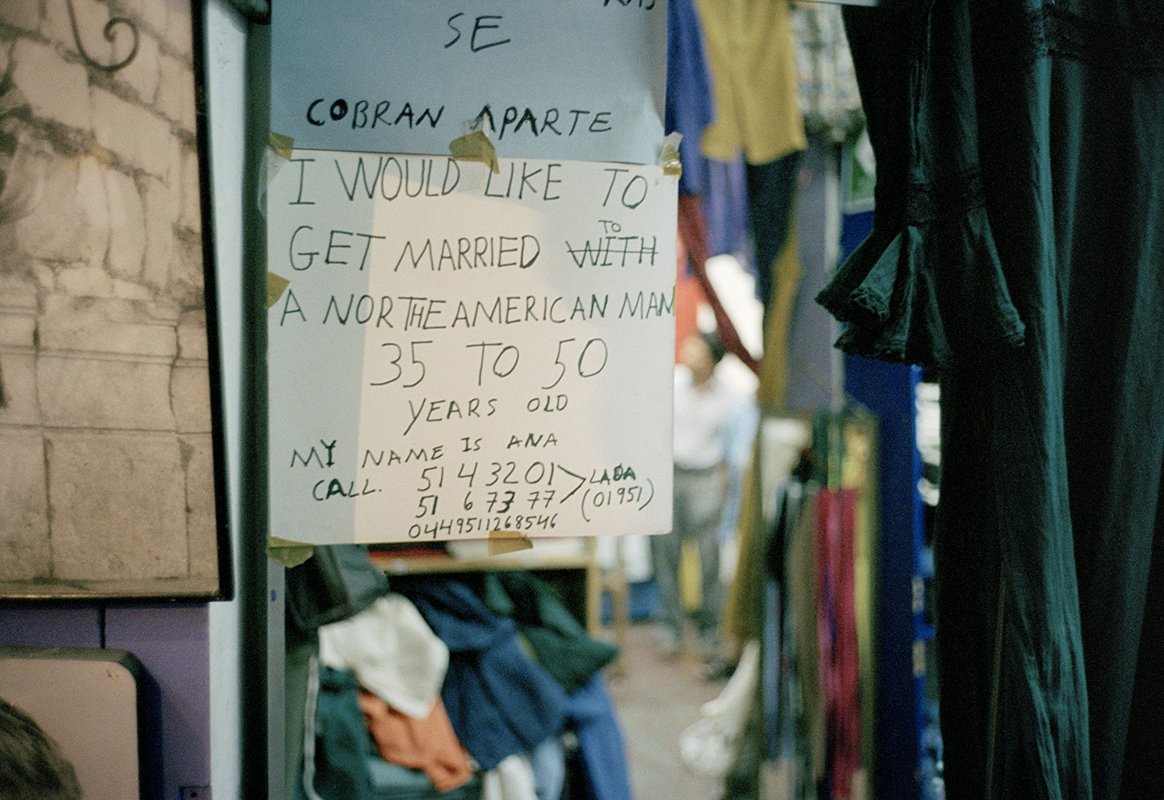 SE
COBRAN APARTE
I WOULD LIKE TO
GET MARRIED WITH TO
A NORTHEAMERICAN MAN
35 TO 50
YEARS OLD
MY NAME IS ANA
CALL. 51 4 32 01 LADA
51 6 73 77 (01951)
0449511268546